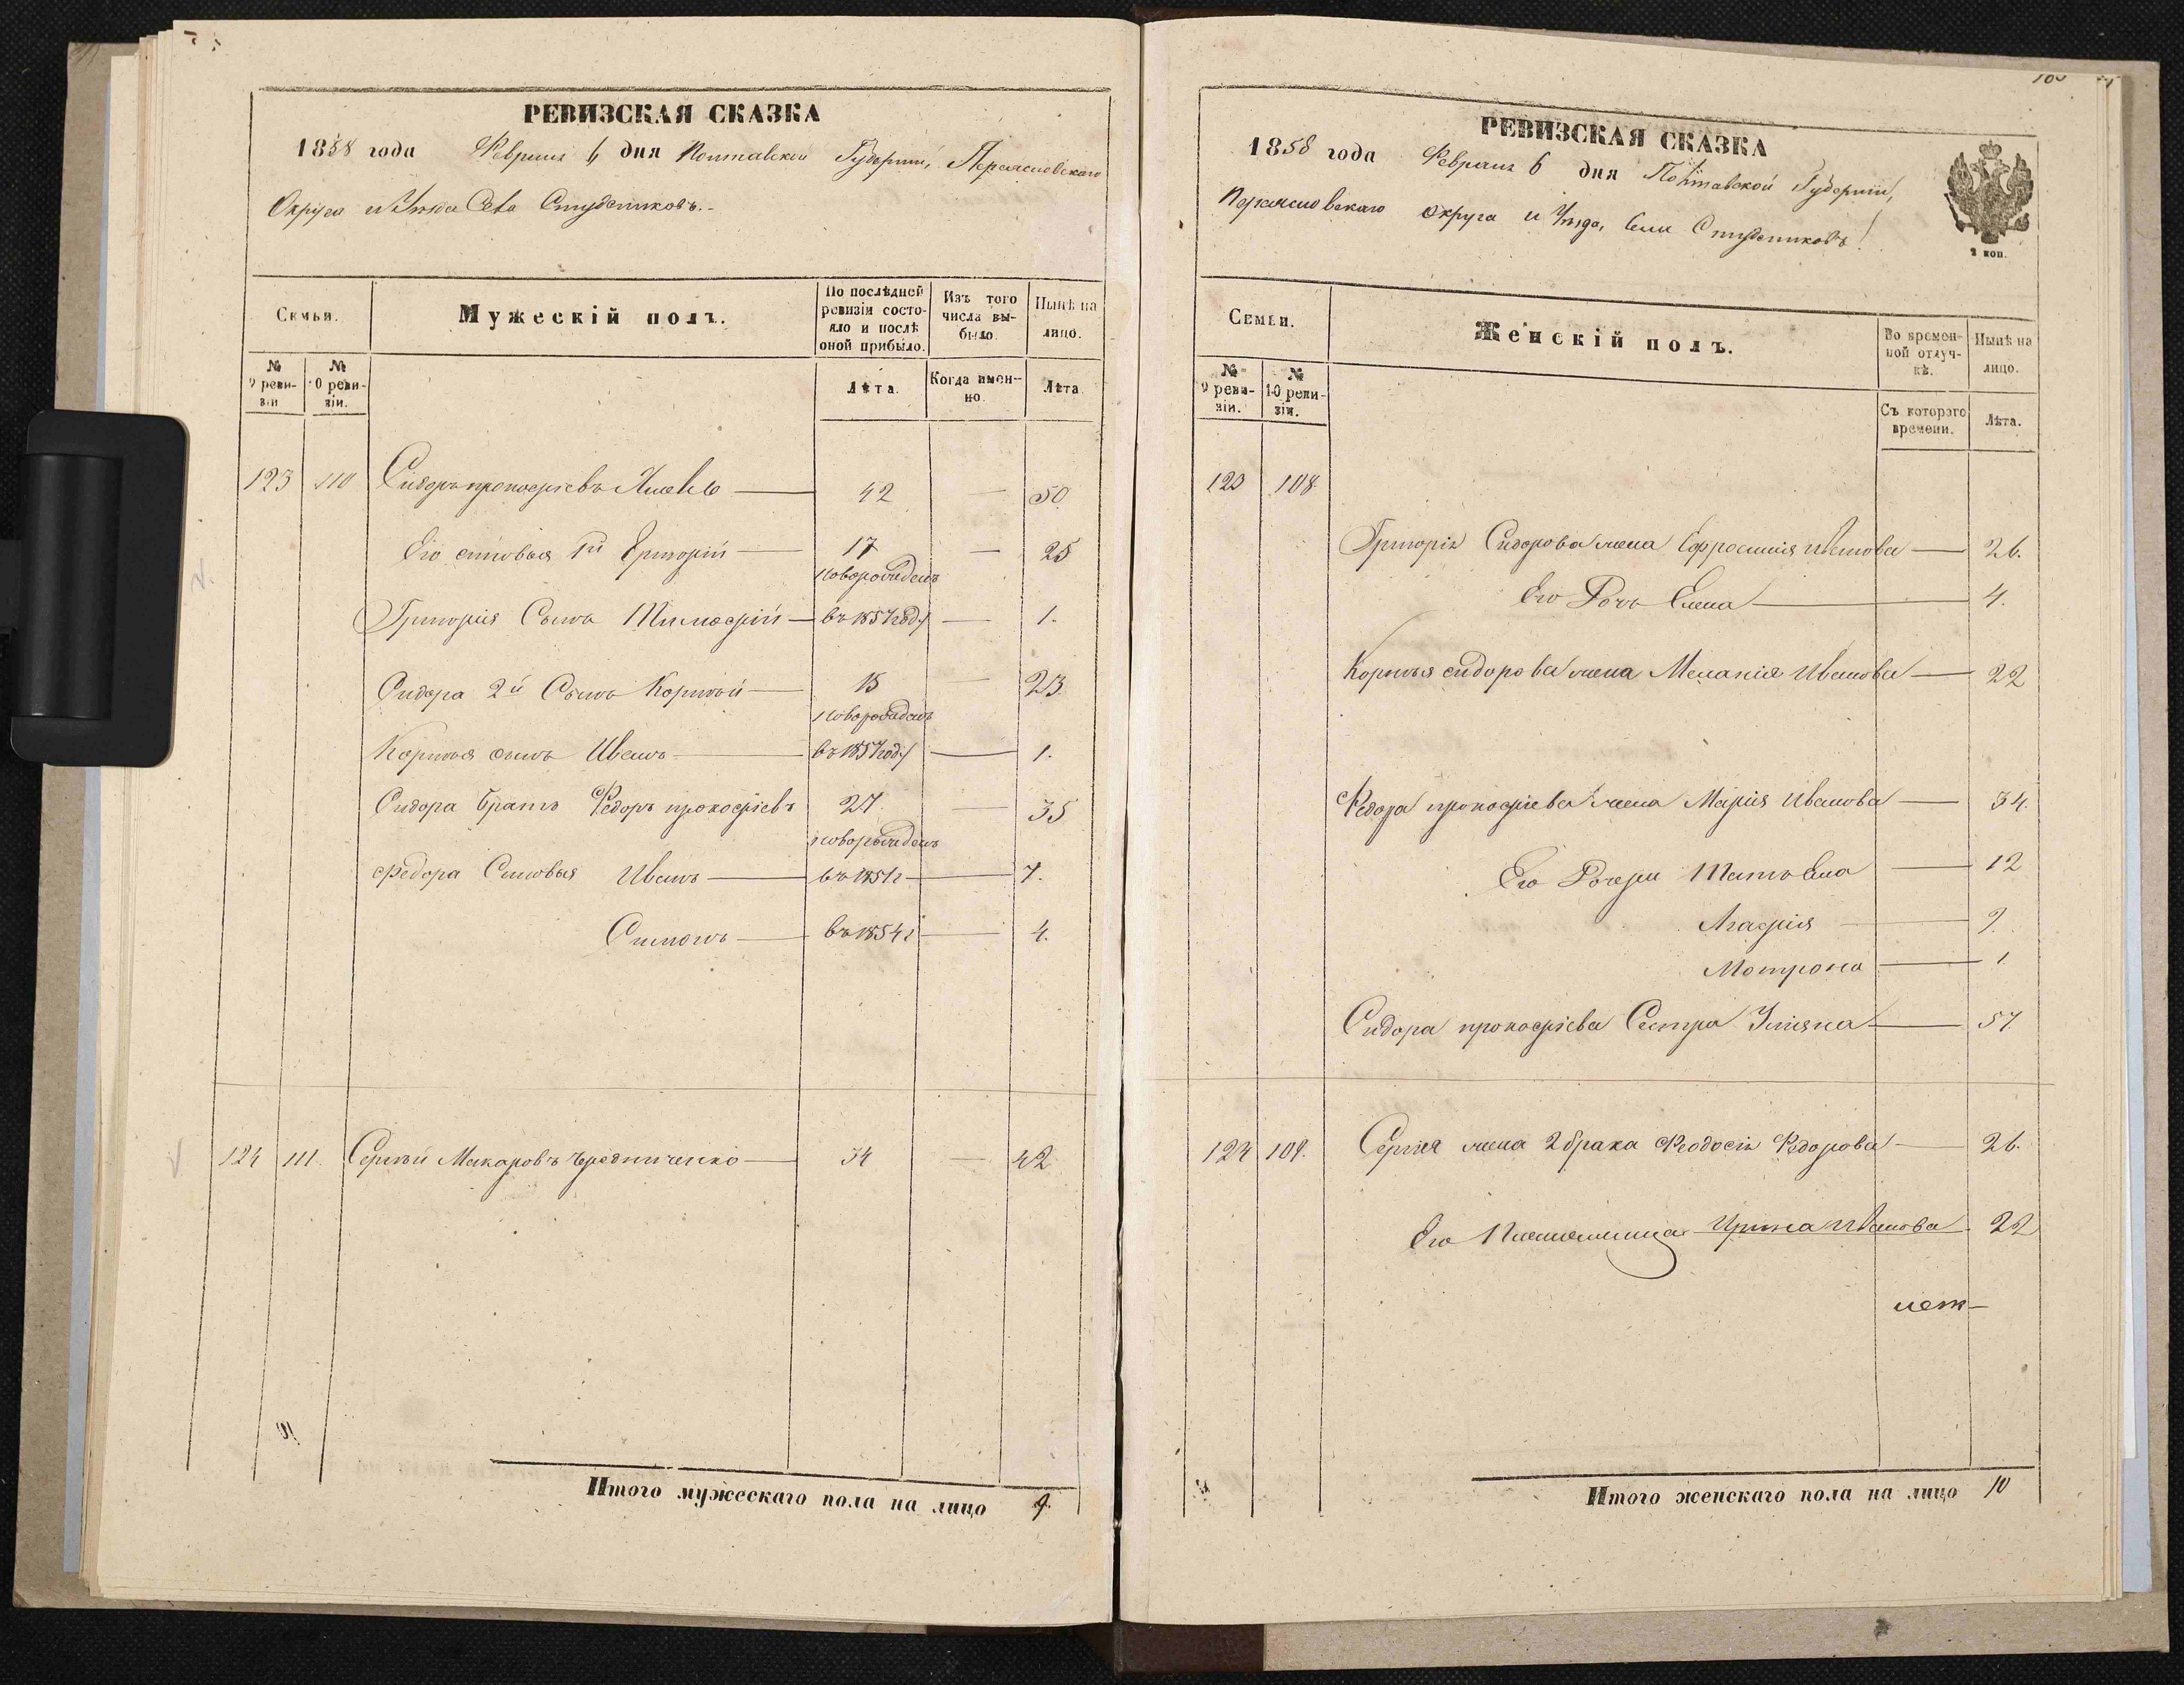 РЕВИЗСКАЯ СКАЗКА
1858 года Февраля 6 дня Полтавской Губерніи, Переяславскаго
Округа и Уѣзда Села Студениковъ.
Семьи.
Мужескій полъ.
По послѣдней ревизіи состояло и послѣ оной прибыло.
Изъ того числа выбыло.
Нынѣ на лицо.
№ 9 ревизіи
№ 10 ревизіи.
Лѣта.
Когда именно.
Лѣта
123 110 Сидоръ прокофіевъ 42 — 50
Его сыновья 1й Григорій 17 — 25
новорожденъ
Григорія Сынъ Тимофій въ 1857 год. — 1.
Сидора 2й Сынъ Корнѣй 15 — 23
новорожденъ
Корнѣя сынъ Иванъ въ 1857 год. — 1.
Сидора братъ Ѳедоръ прокофіевъ 27 — 35
новорожденъ
Федора Сыновья Иванъ въ 1851 г — 7.
Симонъ въ 1854 г — 4.
124 111. Сергѣй Макаровъ Чередниченко 34 — 42
Итого мужескаго пола на лицо 9.
РЕВИЗСКАЯ СКАЗКА
1858 года Февраля 6 дня Полтавской Губерніи,
Переяславскаго округа и Уѣзда, Села Студениковъ
2 коп.
Семьи.
Женскій полъ.
Во временной отлучкѣ.
Нынѣ на лицо.
№ 9 ревизіи.
№ 10 ревизіи.
Съ котораго времени.
Лѣта.
123 108
Григорія Сидорова жена Ефросинія Иванова — 26.
Его Дочь Елена — 4.
Корнѣя сидорова жена Меланія Иванова — 22
Ѳедора прокофіева жена Марія Иванова — 34.
Его Дочери Татьяна — 12
Агафія — 9
Мотрона — 1
Сидора прокофіева Сестра Уліяна — 57
124 109. Сергія жена 2 брака Феодосія Ѳедорова — 26.
Его Племянница Ирина Иванова 22
Итого женскаго пола на лицо 10